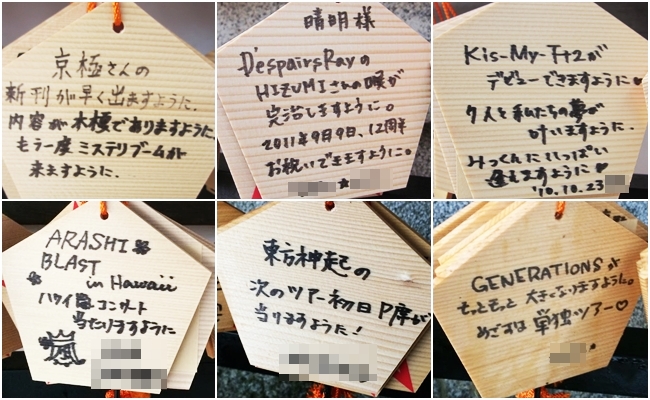 京極さんの
新刊が早く出ますように.
内容が木棲でありますように
もう一度ミステリブームが
来ますように.
晴明様
D'espairsRayの
HIZUMIさんの喉が
完治しますように。
2011年9月9日、12周年
お祝いできますように。
Kis-My-Ft2が
デビューできますように
7人と私たちの夢が
叶いますように.
みっくんにいっぱい
逢えますように♥
'10.10.23
ARASHI
BLAST
in Hawaii
ハワイ コンサート
当たりますように
嵐
東方神起の
次のツアー初日P席が
当りますように!
GENERATIONSが
もっともっと大きくなりますように。
めざすは単独ツアー♡